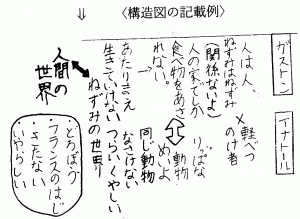 〈構造図の記載例〉
ガストン
アナトール
人は人、
ねずみはねずみ
(関係ないよ)
人の家でしか
食べ物をあさ
れない。
→
あたりまえ
生きていけない
×軽べつ
のけ者
りっぱな
動物
めいよ
同じ動物
なさけない
つらいくやしい
ねずみの世界
人間の
世界
どろぼう
・フランスのはじ
・きたない
いやらしい